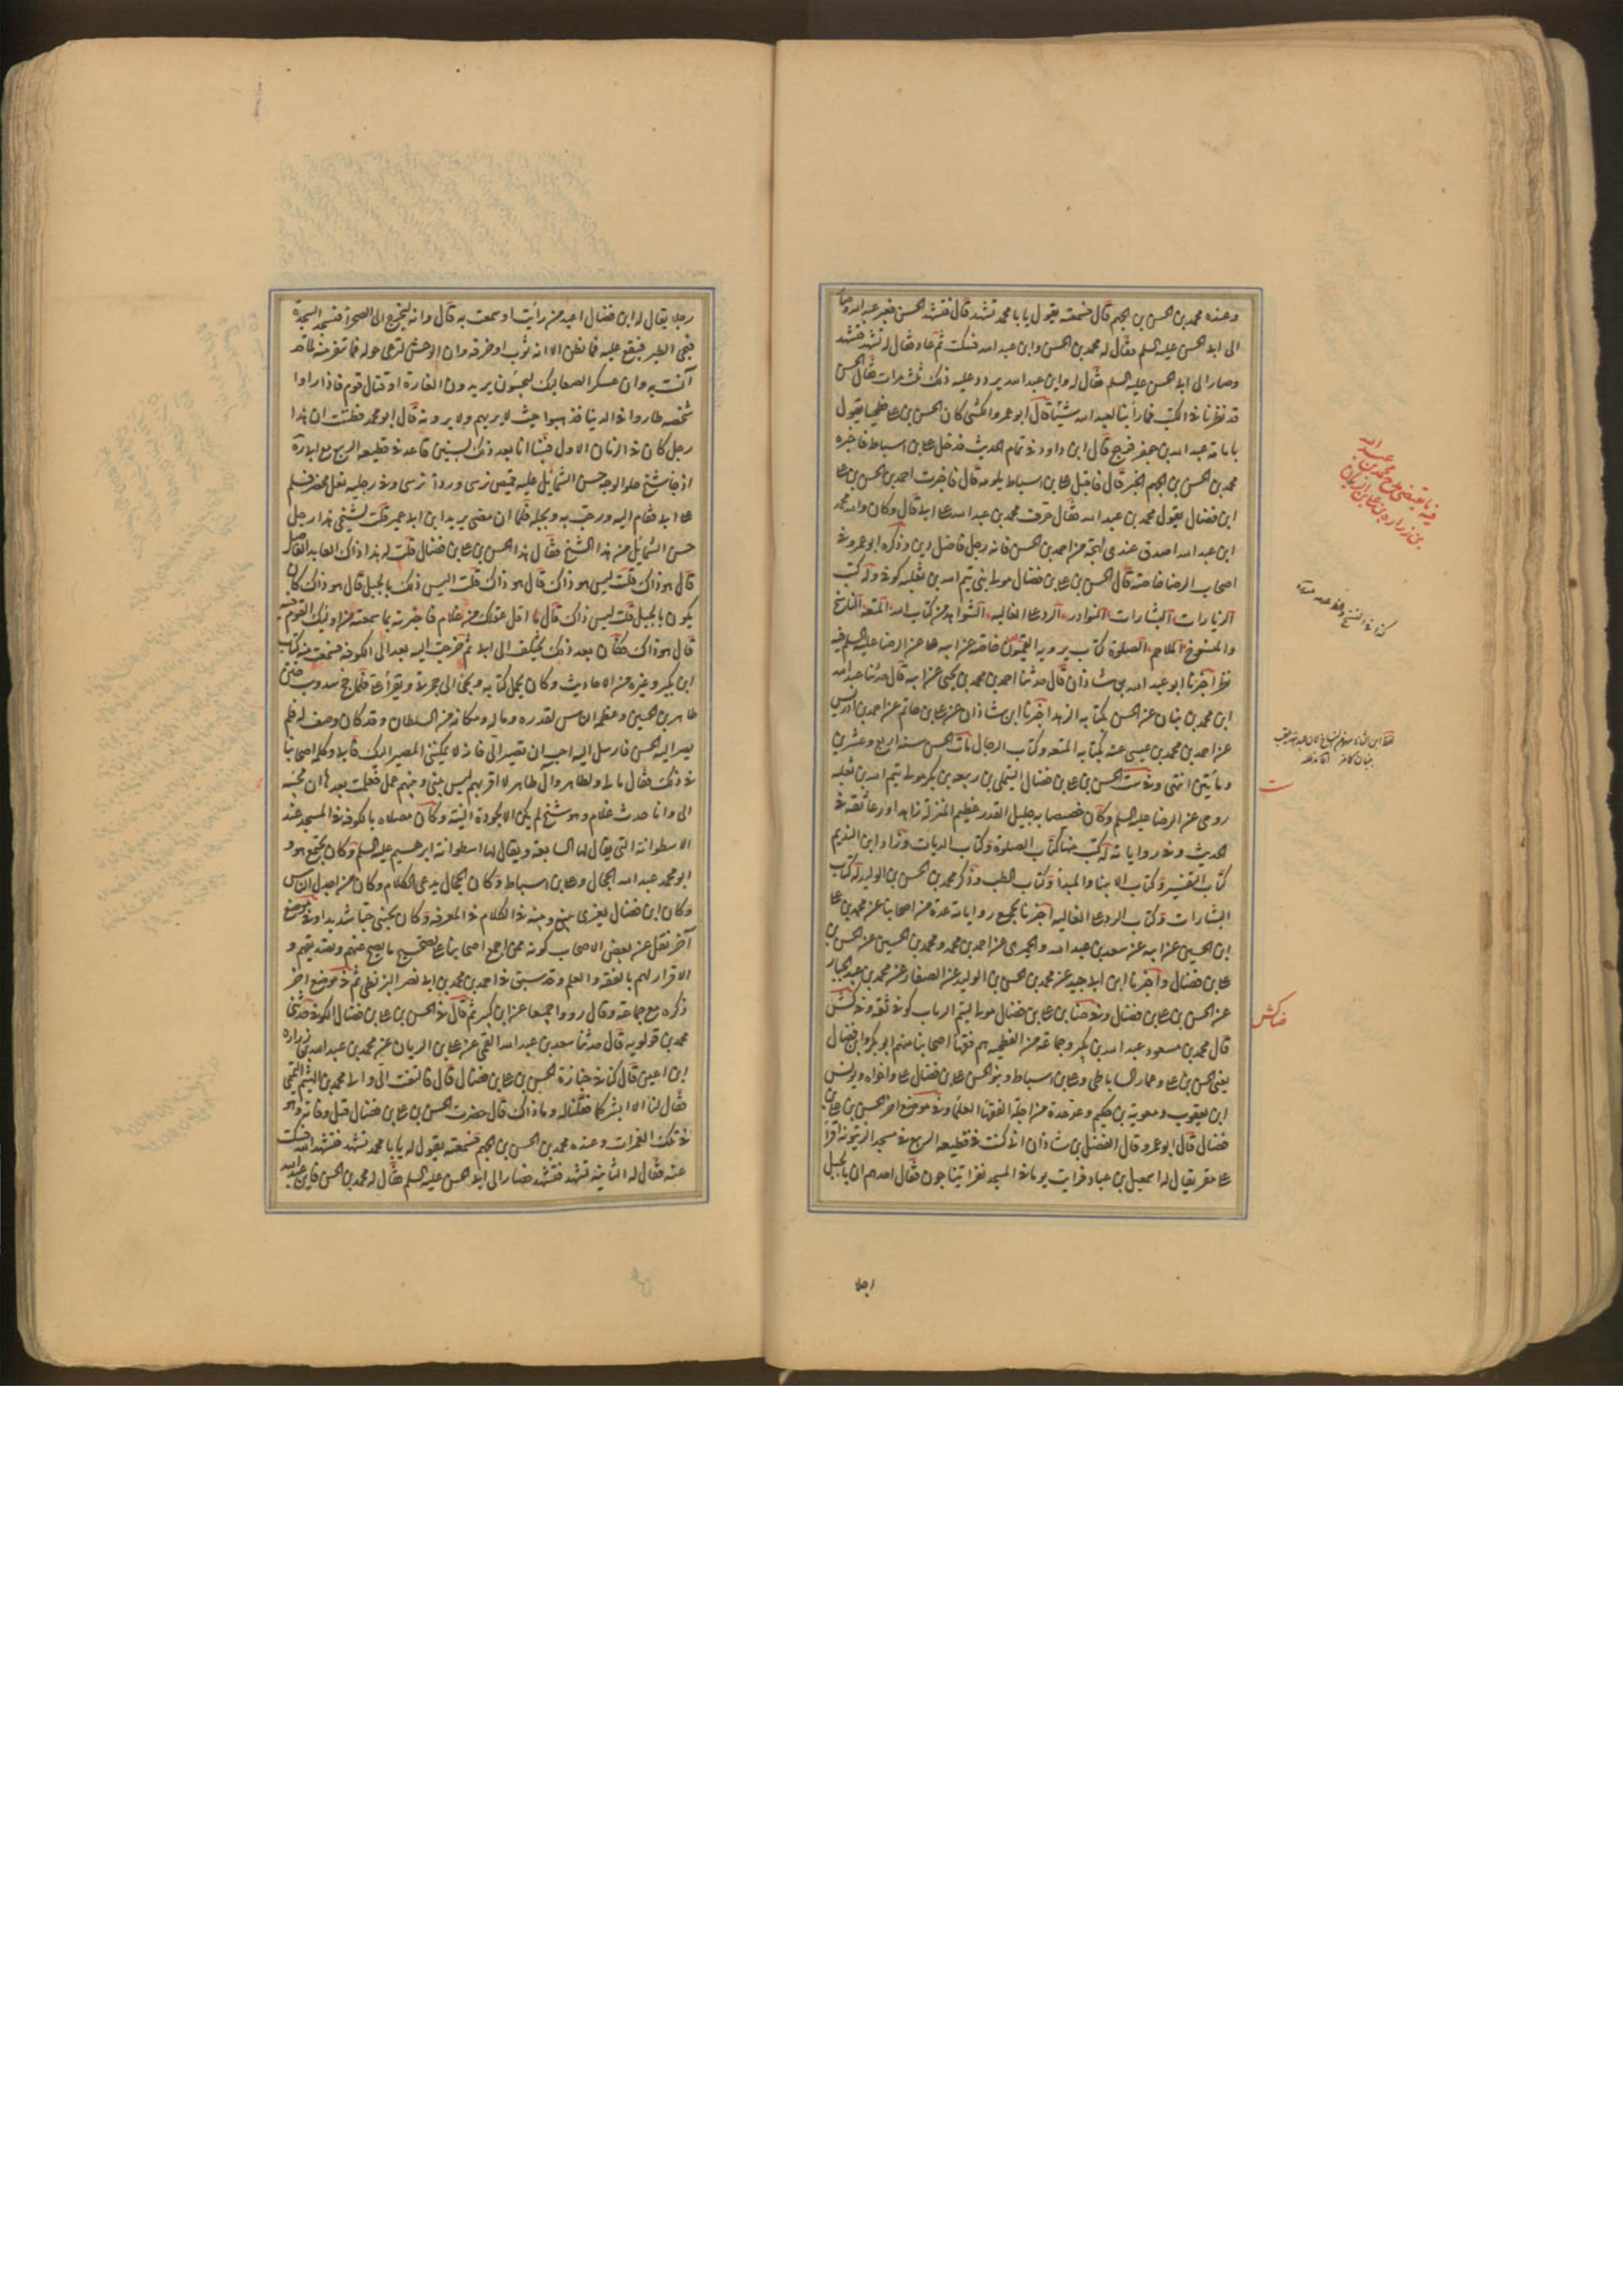 وعنده محمد بن الحسن بن الجهم قال فسمعته يقول يابا محمد تشهد قال فتشهد الحسن فعبر عبد الله وصار
الى ابي الحسن عليه السلم فقال له محمد بن الحسن واين عبد الله فسكت ثم عاد فقال له تشهد فتشهد
وصار الى ابي الحسن عليه السلم فقال له واين عبد الله يردد عليه ذلك ثلث مرات فقال الحسن
قد نظرنا في الكتب فما رأينا لعبد الله شيئا قال ابو عمرو الكشي كان الحسن بن علي فطحيا يقول
بامامة عبد الله بن جعفر فرجع قال ابن داود في تمام الحديث فدخل علي بن اسباط فاخبره
محمد بن الحسن بن الجهم الخبر قال فاقبل علي بن اسباط يلومه قال فاخبرت احمد بن الحسن بن علي
ابن فضال بقول محمد بن عبد الله فقال حرف محمد بن عبد الله على ابي قال وكان والله محمد
ابن عبد الله اصدق عندي لهجة من احمد بن الحسن فانه رجل فاضل دين وذكره ابو عمرو في
اصحاب الرضا خاصة قال الحسن بن علي بن فضال مولى بني تيم الله بن ثعلبه كوفي وله كتب
الزيارات البشارات النوادر الرد على الغاليه الشواهد من كتاب الله المتعه الناسخ
والمنسوخ الملاحم الصلوة كتاب يرويه القميون خاصة عن ابيه علي عن الرضا عليه السلم فيه
نظر اخبرنا ابو عبد الله بن شاذان قال حدثنا احمد بن محمد بن يحيى عن ابيه قال حدثنا عبد الله
ابن محمد بن بنان عن الحسن بكتابه الزهد اخبرنا ابن شاذان عن علي بن حاتم عن احمد بن ادريس
عن احمد بن محمد بن عيسى عنه بكتابه المتعه وكتاب الرجال مات الحسن سنة اربع وعشرين
ومأتين انتهى وفي ست الحسن بن علي بن فضال التيملي بن ربيعه بن بكر مولى تيم الله بن ثعلبه
روى عن الرضا عليه السلم وكان خصيصا به جليل القدر عظيم المنزلة زاهدا ورعا ثقة في
الحديث وفي رواياته له كتب منها كتاب الصلوة وكتاب الديات وزاد ابن النديم
كتاب التفسير وكتاب الابتدا والمبدأ وكتاب الطب وذكر محمد بن الحسن بن الوليد له كتاب
البشارات وكتاب الرد على الغاليه اخبرنا بجميع رواياته عدة من اصحابنا عن محمد بن علي
ابن الحسين عن ابيه عن سعد بن عبد الله والحميري عن احمد بن محمد ومحمد بن الحسين عن الحسن بن
علي بن فضال واخبرنا ابن ابي جيد عن محمد بن الحسن بن الوليد عن الصفار عن محمد بن عبد الجبار
عن الحسن بن علي بن فضال وفي ضا بن علي بن فضال مولى لتيم الرباب كوفي ثقة وفي كش
قال محمد بن مسعود عبد الله بن بكير وجماعة من الفطحيه هم فقها اصحابنا منهم ابو بكر وابن فضال
يعني الحسن بن علي وعمار الساباطي وعلي بن اسباط وبنو الحسن علي بن فضال علي واخواه ويونس
ابن يعقوب ومعوية بن حكيم وعد عدة من اجلة الفقها العلما وفي موضع اخر الحسن بن علي بن
فضال قال ابو عمرو قال الفضل بن شاذان اني كنت في قطيعة الربيع في مسجد الزيتونة اقرأ
على مقر يقال له اسمعيل بن عباد فرايت يوما في المسجد نفرا يتناجون فقال احدهم ان بالجبل
فيه ما يقتضي مدح محمد بن عبد الله
بن زراره وعلي بن الريان
ست
كش
رجلا
رجلا يقال له ابن فضال اعبد من رأيت او سمعت به قال وانه ليخرج الى الصحرا فيسجد السجدة
فيجئ الطير فيقع عليه فما يظن الا انه ثوب او خرقه وان الوحش لترعى حوله فما تنفر منه لما قد
آنست به وان عسكر الصعاليك ليجيئون يريدون الغارة او قتال قوم فاذا راوا
شخصه طاروا في الدنيا فذهبوا حيث لا يريهم ولا يرونه قال ابو محمد فظننت ان هذا
رجل كان في الزمان الاول فبينا انا بعد ذلك بسنين قاعد في قطيعه الربيع مع ابي ره
اذ جا شيخ حلو الوجه حسن الشمائل عليه قميص نرسي وردا نرسي وفي رجليه نعل مخصر فسلم
على ابي فقام اليه ورحب به وبجله فلما ان مضى يريد ابن ابي عمير قلت لشيخي هذا رجل
حسن الشمائل من هذا الشيخ فقال هذا الحسن بن علي بن فضال قلت له هذا ذاك العابد الفاضل
قال هو ذاك قلت ليس هو ذاك قال هو ذاك قلت اليس ذلك بالجبل قال هو ذاك كان
يكون بالجبل قلت ليس ذاك قال ما اقل عقلك من غلام فاخبرته بما سمعته من اوليك القوم فيه
قال هو ذاك فكان بعد ذلك يختلف الى ابي ثم خرجت اليه بعد الى الكوفه فسمعت منه كتاب
ابن بكير وغيره من الاحاديث وكان يحمل كتابه ويجئ الى حجرتي ويقرأه علي فلما حج سدوشب ختن
طاهر بن الحسين وعظمه الناس لقدره وماله ومكانه من السلطان وقد كان وصف له فلم
يصر اليه الحسن فارسل اليه احب ان تصير الي فانه لا يمكنني المصير اليك فابى وكلمه اصحابنا
في ذلك فقال مالي ولطاهر وآل طاهر لا اقربهم ليس بيني وبينهم عمل فعلمت بعدها ان مجيئه
الي وانا حدث غلام وهو شيخ لم يكن الا لجودة النية وكان مصلاه بالكوفه في المسجد عند
الاسطوانة التي يقال لها السابعه ويقال لها اسطوانة ابرهيم عليه السلم وكان يجتمع هو و
ابو محمد عبد الله الحجال وعلي بن اسباط وكان الحجال يدعي الكلام وكان من اجدل الناس
وكان ابن فضال يغري بيني وبينه في الكلام في المعرفه وكان يحبني حبا شديدا وفي موضع
آخر نقل عن بعض الاصحاب كونه ممن اجمع اصحابنا على تصحيح ما يصح عنهم وتصديقهم و
الاقرار لهم بالفقه والعلم وقد سبق في احمد بن محمد بن ابي نصر البزنطي ثم في موضع اخر
ذكره مع جماعة وقال رووا جميعا عن ابن بكير ثم قال في الحسن بن علي بن فضال الكوفي حدثني
محمد بن قولويه قال حدثنا سعد بن عبد الله القمي عن علي بن الريان عن محمد بن عبد الله بن زراره
ابن اعين قال كنا في جنازة الحسن بن علي بن فضال قال فالتفت الي والى محمد بن الهيثم التميمي
فقال لنا الا ابشركما فقلنا له وما ذاك قال حضرت الحسن بن علي بن فضال قبل وفاته وهو
في تلك الغمرات وعنده محمد بن الحسن بن الجهم فسمعته يقول له يابا محمد تشهد فتشهد الله فسكت
عنه فقال له الثانيه تشهد فتشهد فصار الى ابي الحسن عليه السلم فقال له محمد بن الحسن فاين عبد الله